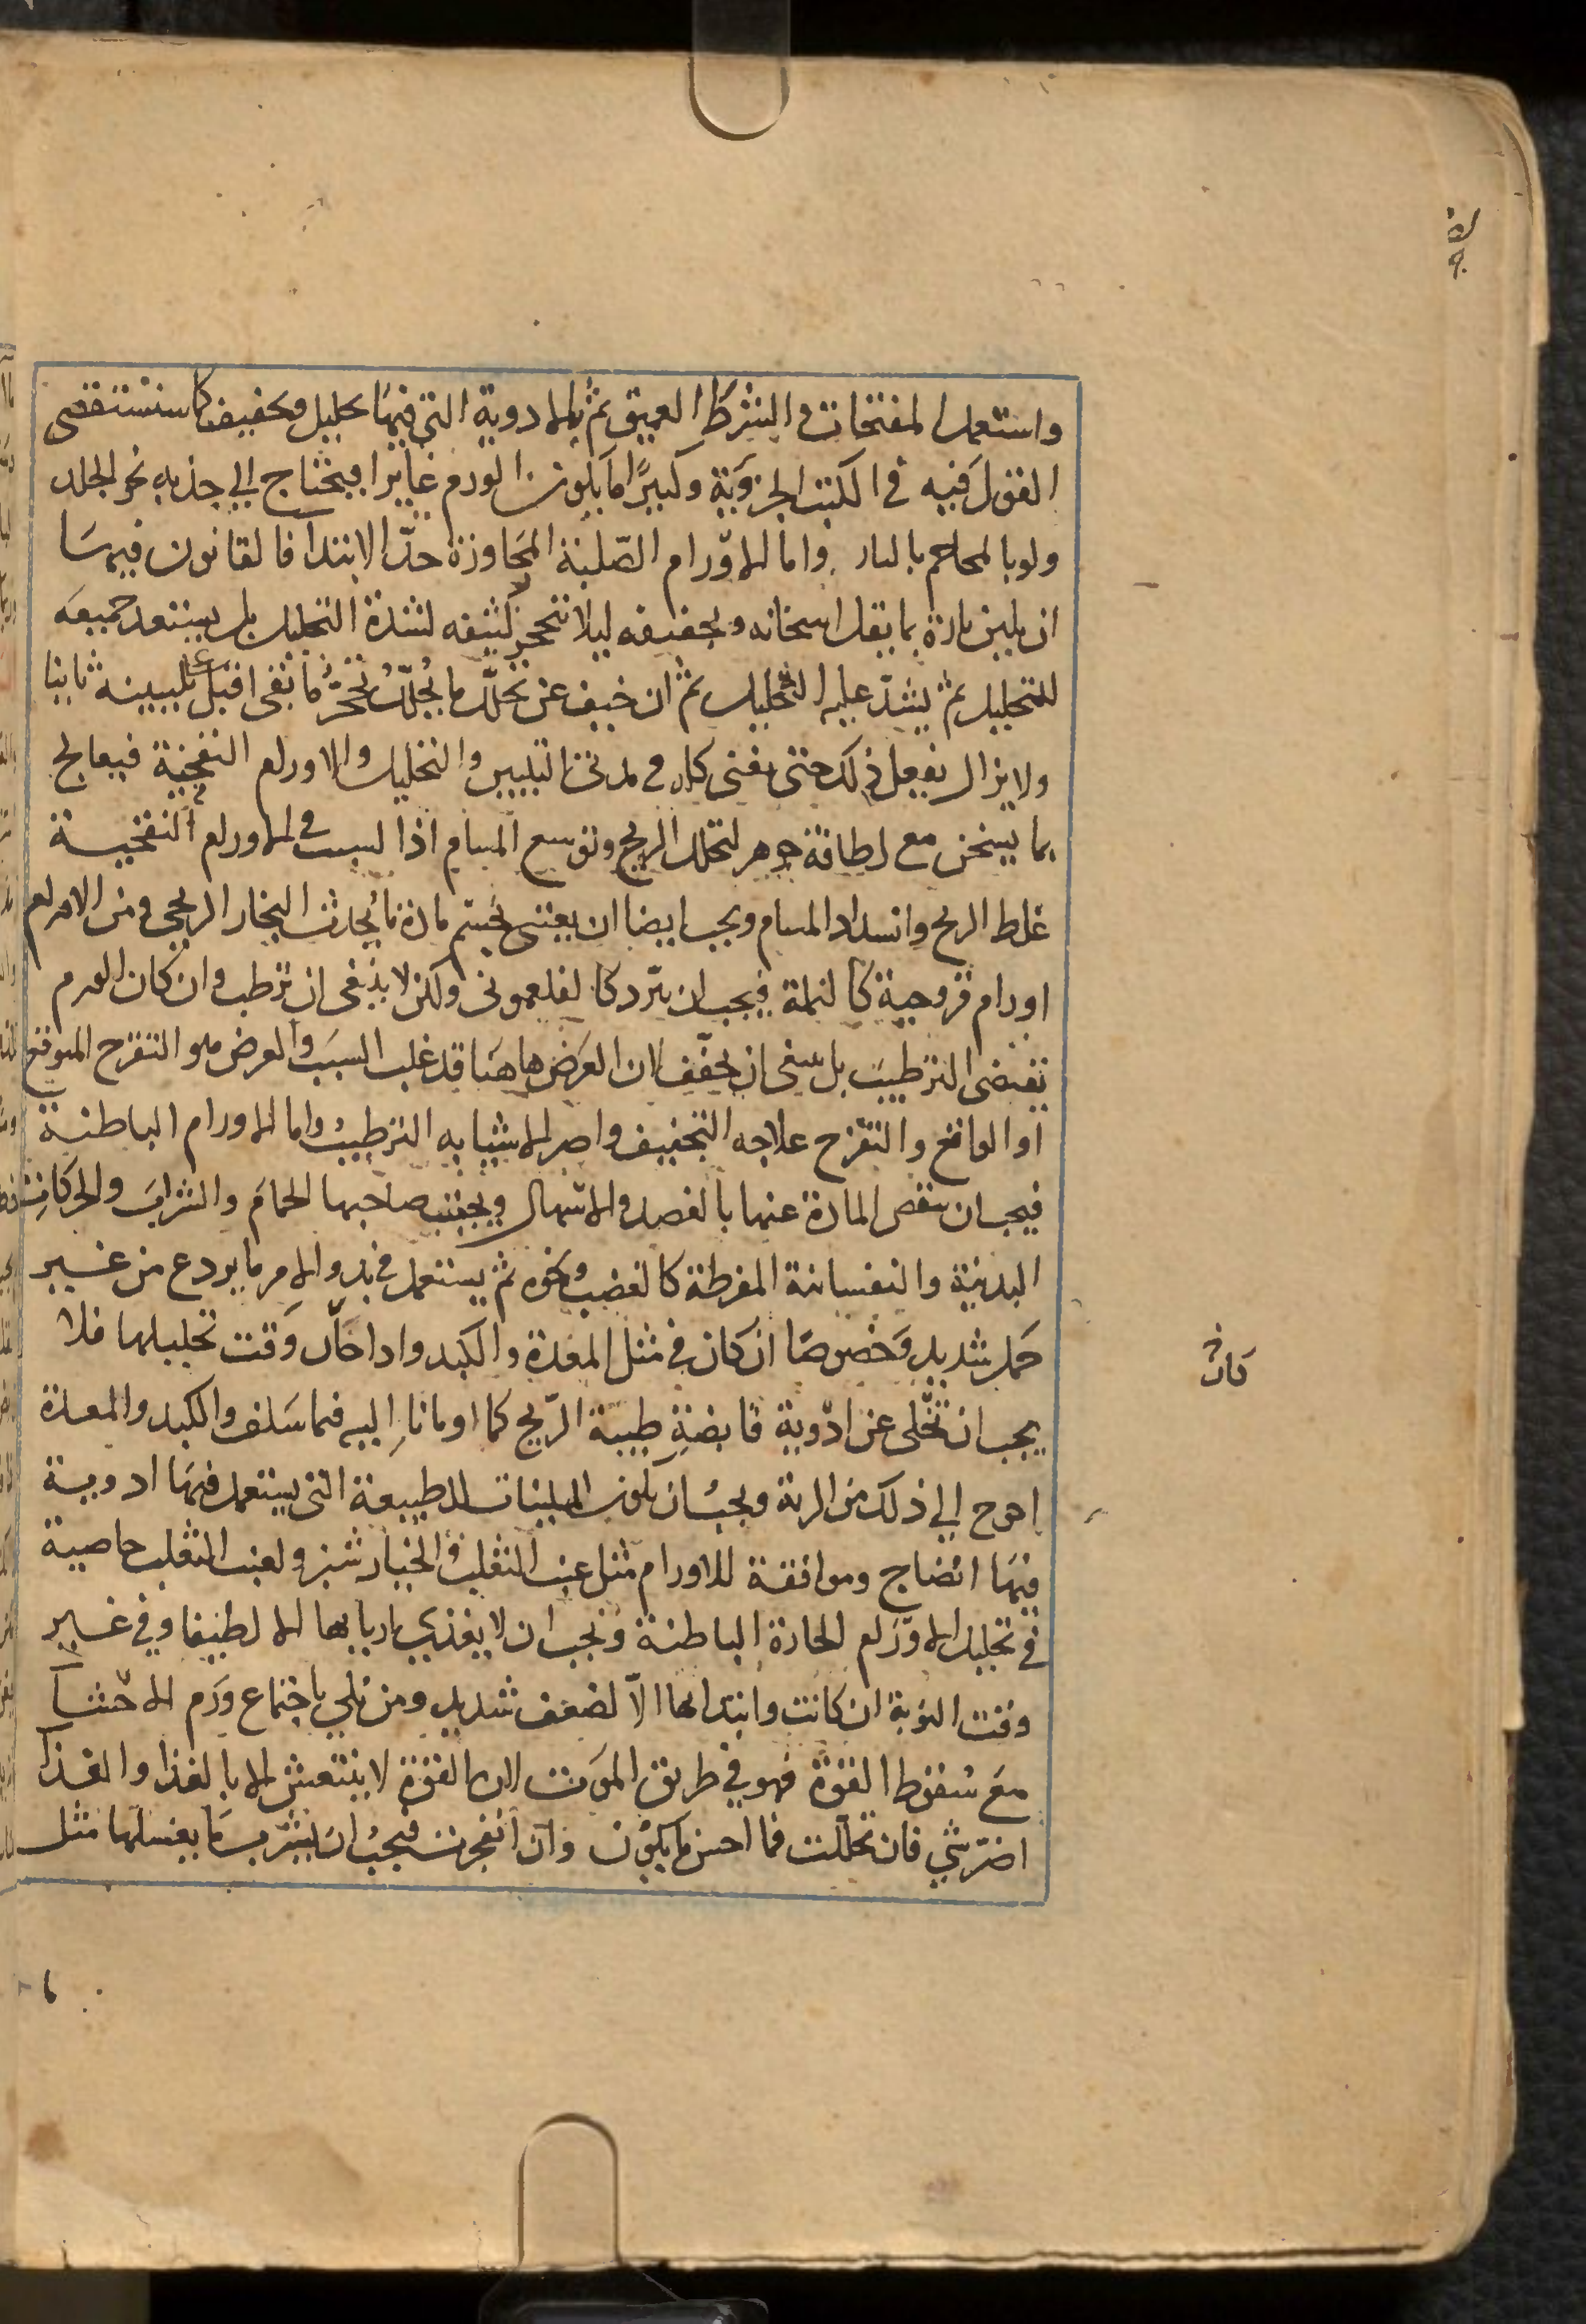 واستعمل المفتحات والشرط العميق ثم بالادوية التي فيها تحليل وتجفيف كما سنستقصى
القول فيه في الكتب الجزوية وكثيرا ما يكون الورم غايرا فيحتاج الي جذبه نحو الجلد
ولو بالمحاجم بالنار واما الاورام الصلبة المجاوزة حد الابتدا فالقانون فيها
ان يلين تارة بما يقل اسخانه وتجفيفه ليلا يتحجر كثيفه لشدة التحليل بل يستعد جميعه
للتحليل ثم يشد عليه التحليل ثم ان خيف عن تحلل ما تحلل تحجر ما بقى اقبل على تليينه ثانيا
ولا يزال يفعل ذلك حتى يفنى كله في مدتى التليين والتحليل والاورام النفخية فيعالج
بما يسخن مع لطافة جوهر لتحلل الريح وتوسع المسام اذا السبب في الاورام النفخية
غلظ الريح وانسداد المسام ويجب ايضا ان يعتنى بحسم مادة ما يحدث البخار الريحى ومن الاورام
اورام قروحية كالنملة فيجب ان تبرد كالفلغمونى ولكن لا ينبغى ان ترطب وان كان الورم
تقتضى الترطيب بل ينبغى ان يجفف لان العرض هاهنا قد غلب السبب والعرض هو التقرح المتوقع
او الواقع والتقرح علاجه التجفيف واضر الاشيا به الترطيب واما الاورام الباطنة
فيجب ان تنقص المادة عنها بالفصد والاسهال ويجتنب صاحبها الحمام والشراب والحركات
البدنية والنفسانية المفرطة كالغضب ونحوه ثم يستعمل في بدو الامر ما يردع من غير
حمل شديد وخصوصا ان كان في مثل المعدة والكبد واذا حان وقت تحليلها فلا
يجب ان تخلى عن ادوية قابضة طيبة الريح كما اومانا اليه فيما سلف والكبد والمعدة
احوج الي ذلك من الرية ويجب ان يكون الملينات للطبيعة التي يستعمل فيها ادوية
فيها انضاج وموافقة للاورام مثل عنب الثعلب والخيار شنبر ولعنب الثعلب خاصية
في تحليل الاورام الحارة الباطنة ويجب ان لا يغذى اربابها الا لطيفا وفي غير
وقت النوبة ان كانت وابتداها الا لضعف شديد ومن بلي باجتماع ورم الاحشا
مع سقوط القوة فهو في طريق الموت لان القوة لا ينتعش الا بالغذا والغذا
اضر شي فان تحللت فما احسن ما يكون وان انفجرت فيجب ان يشرب ما يغسلها مثل